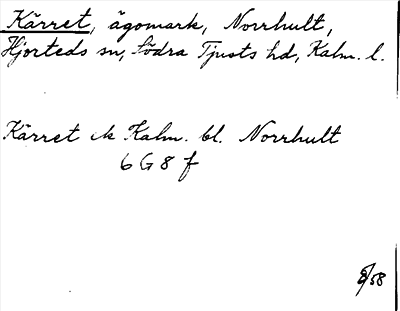 Kärret, ägomark, Norrhult,
Hjorteds sn, Södra Tjusts hd, Kalm. l.
Kärret ek Kalm. bl. Norrhult
6 G 8 f